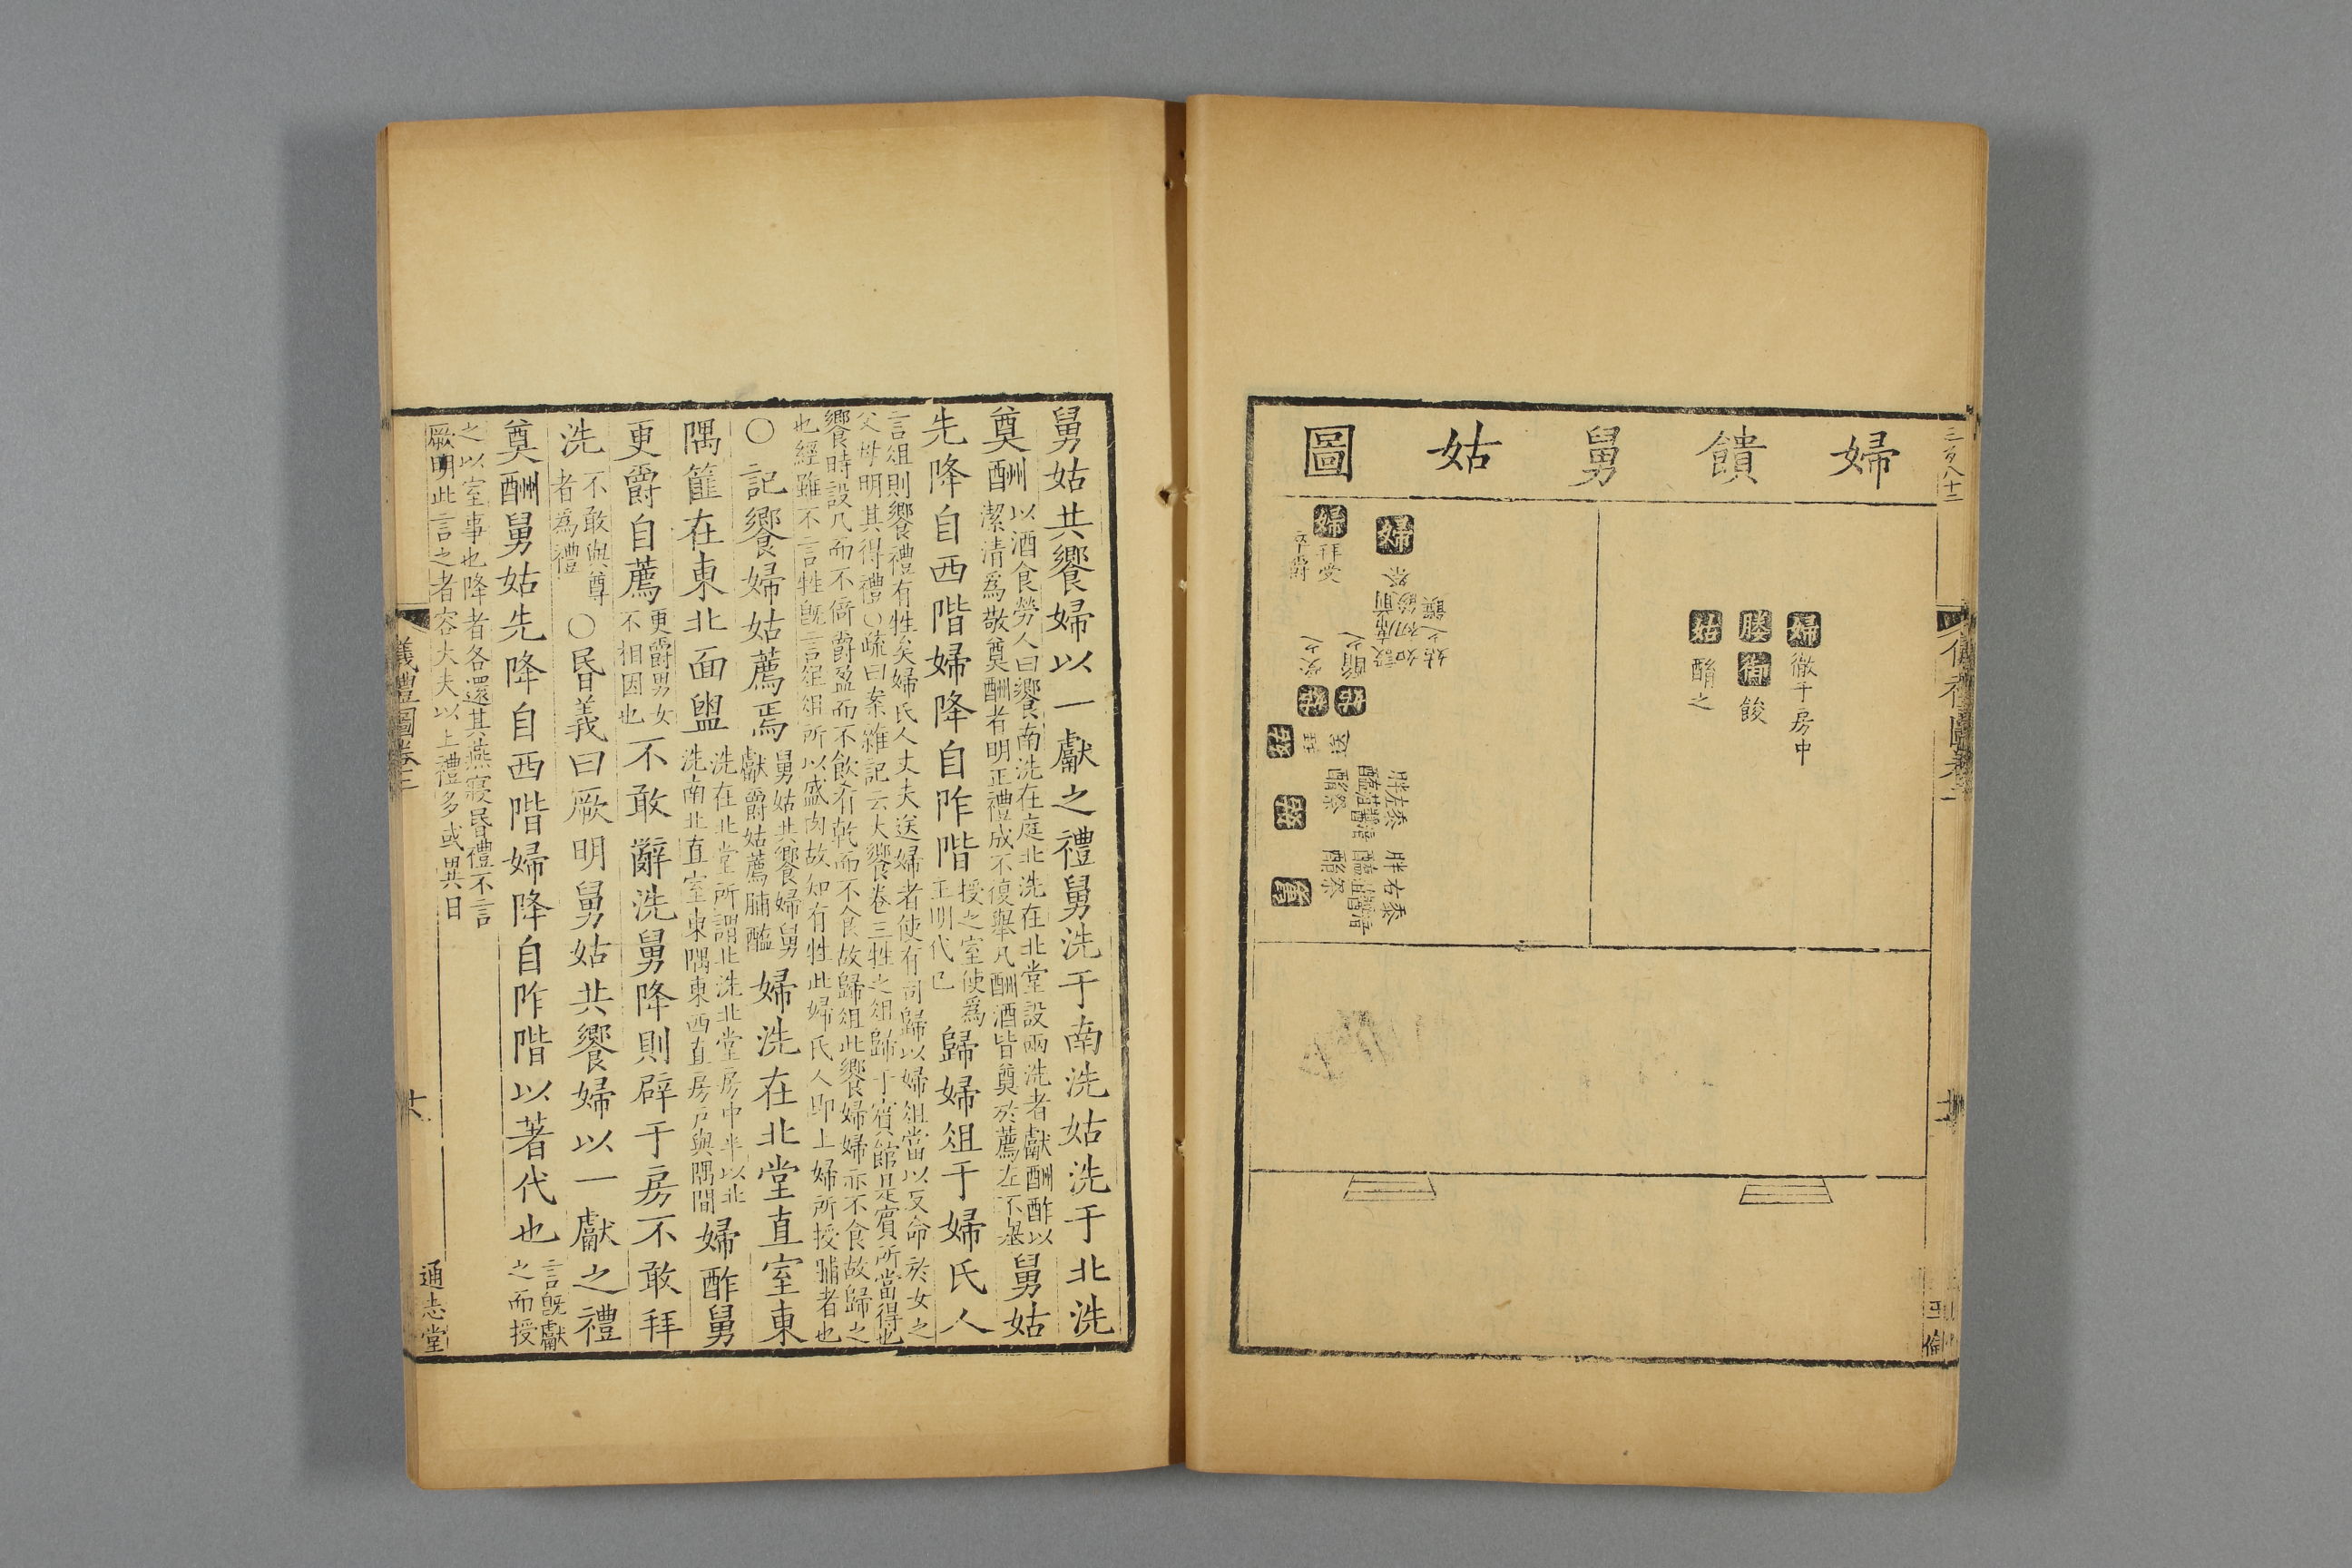 婦饋舅姑圖
婦徹于房中
媵御餕
姑酳之
婦
婦拜受
舅姑共饗婦以一獻之禮舅洗于南洗姑洗于北洗
奠酬以酒食勞人曰饗南洗在庭北洗在北堂設兩洗者獻酬酢以
潔清為敬奠酬者明正禮成不復舉凡酬酒皆奠於薦左不舉舅姑
先降自西階婦降自阼階授之室使為
主明代己歸婦俎于婦氏人
言俎則饗禮有牲矣婦氏人丈夫送婦者使有司歸以婦俎當以反命於女之
父母明其得禮○疏曰案雜記云大饗卷三牲之俎歸于賓館是賓所當得也
饗時設几而不倚爵盈而不飲肴乾而不食故歸俎此饗婦婦亦不食故歸之
也經雖不言牲既言俎俎所以盛肉故知有牲此婦氏人即上婦所授脯者也
○記饗婦姑薦焉舅姑共饗婦舅
獻爵姑薦脯醢婦洗在北堂直室東
隅篚在東北面盥洗在北堂所謂北洗北堂房中半以北
洗南北直室東隅東西直房戶與隅間婦酢舅
更爵自薦更爵男女
不相因也不敢辭洗舅降則辟于房不敢拜
洗不敢與尊
者為禮○昬義曰厥明舅姑共饗婦以一獻之禮
奠酬舅姑先降自西階婦降自阼階以著代也言既獻
之而授
之以室事也降者各還其燕寢昬禮不言
厥明此言之者容大夫以上禮多或異日
儀禮圖卷三
通志堂